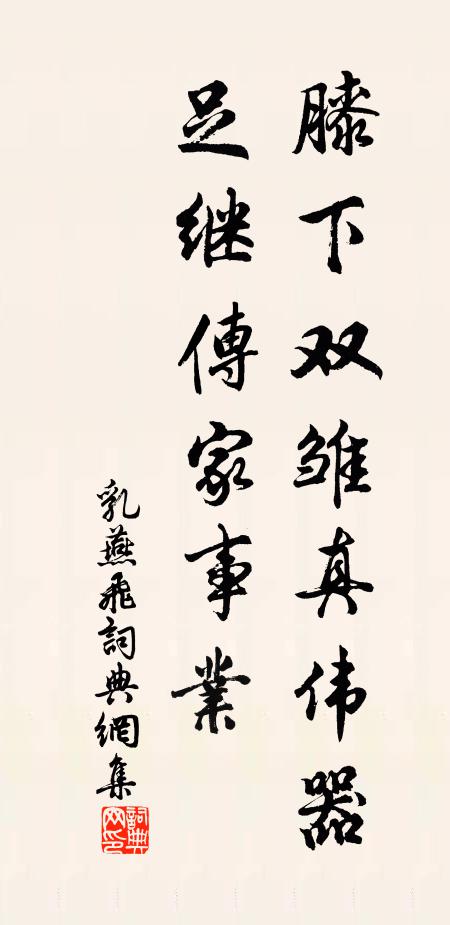 膝下双雏真伟器
足继傳家事業
乳燕飛詞典網集
詞典网印